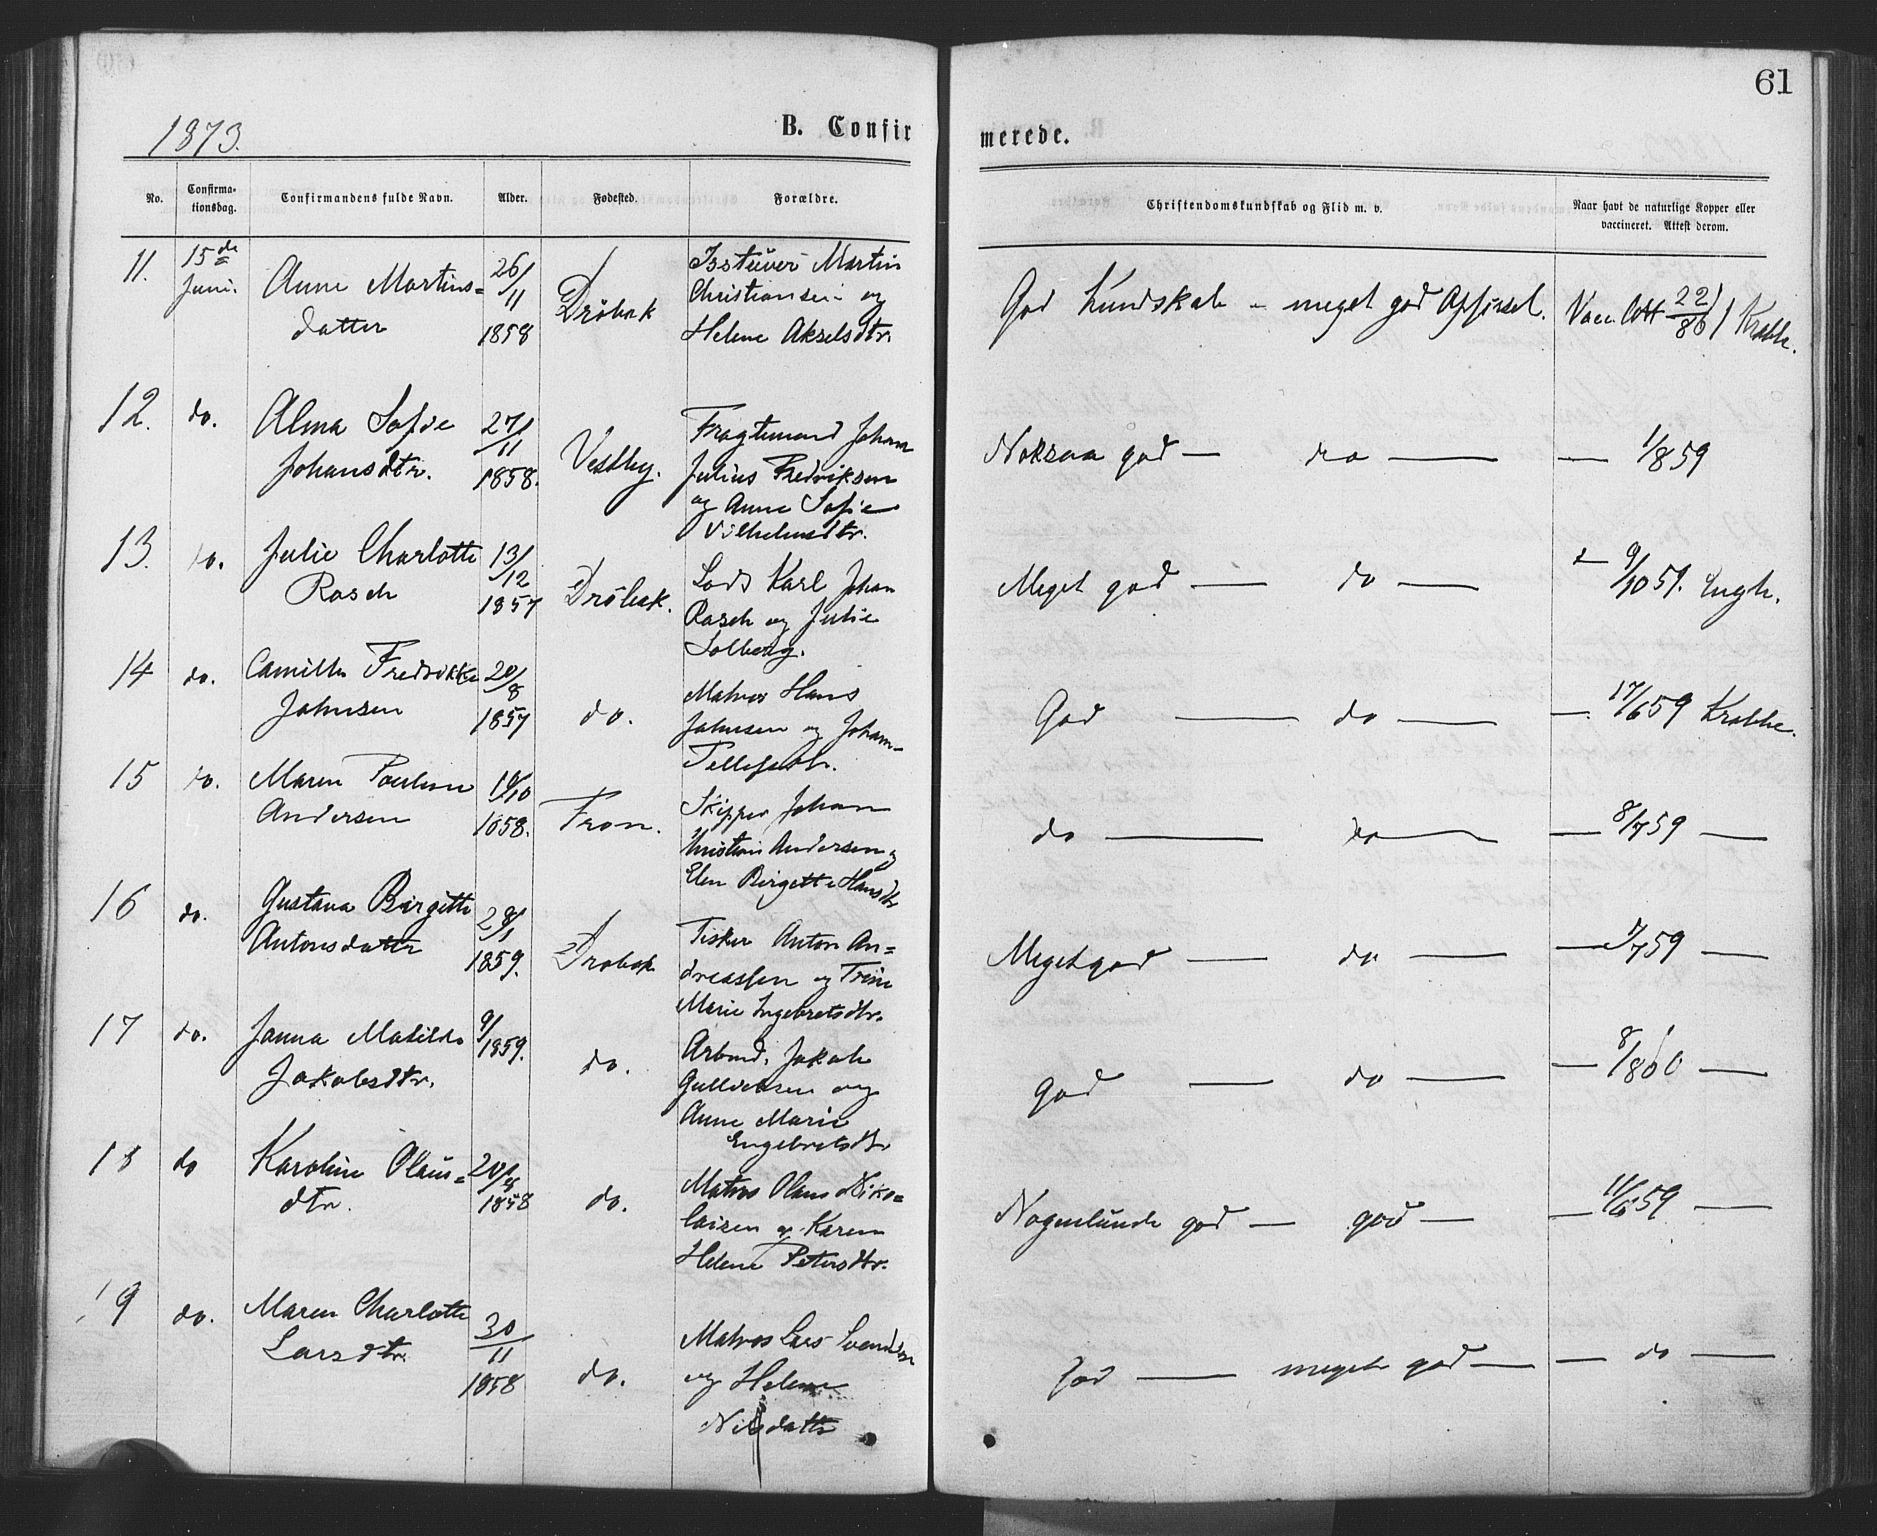 61
1873.
B. Confirmerede.
No. Confirmationsdag. Confirmandens fulde Navn. Alder. Fødested. Forældre. Christendomskundskab og Flid m. v. Naar havt de naturlige Kopper eller vaccineret. Attest derom.
11. 15de Juni. Anne Martins=
datter
26/11 1858
Drøbak
Martin
Christiansen og
Helene Akselsdtr.
God Kundskab - meget god Opførsel.
Vacc. 22/ Krabbe.
12. do. Alma Sofie
Johansdtr.
27/11 1858.
Vestby.
Fragtemand Johan
Julius Fredriksen
og Anne Sofie
Vilhelmsdtr.
Noksaa god — do — — 1/859
13. do. Julie Charlotte
Rasch
13/12 1857
Drøbak.
Lods Karl Johan
Rasch og Julie
Solberg.
Meget god — do — 9/1057. Engh.
14 do. Camilla Fredrikke
Johnsen
20/8 1857
do.
Matros Hans
Johnsen og Johan-
God — do — — 17/659 Krabbe.
15 do. Maren Pauline
Andersen
10/10 1858.
Fron.
Skipper Johan
Kristian Andersen og
Elen Birgette Hansdtr
do — do — — 8/759 —
16 do. Gustava Birgitte
Antonsdatter
28/1 1859.
Drøbak
Tisker Anton An=
dreassen og Trine
Marie Ingebretsdtr.
Meget god — do — — /759 —
17 do. Janna Matilde
Jakobsdtr.
9/1 1859.
do.
Arbmd. Jakob
Gulliksen og
Anne Marie
Engebretsdtr
god — do — — 8/860 —
18 do Karoline Olaus=
dtr.
20/8 1858
do.
Matros Olaus Niko=
laisen og Karen
Helene Petersdtr.
Nogenlunde god — god — — 11/659 —
19 do. Maren Charlotte
Larsdtr.
30/11 1858
do.
Matros Lars Svendsen
og Helene
Nilsdatter
God — meget god — — do —